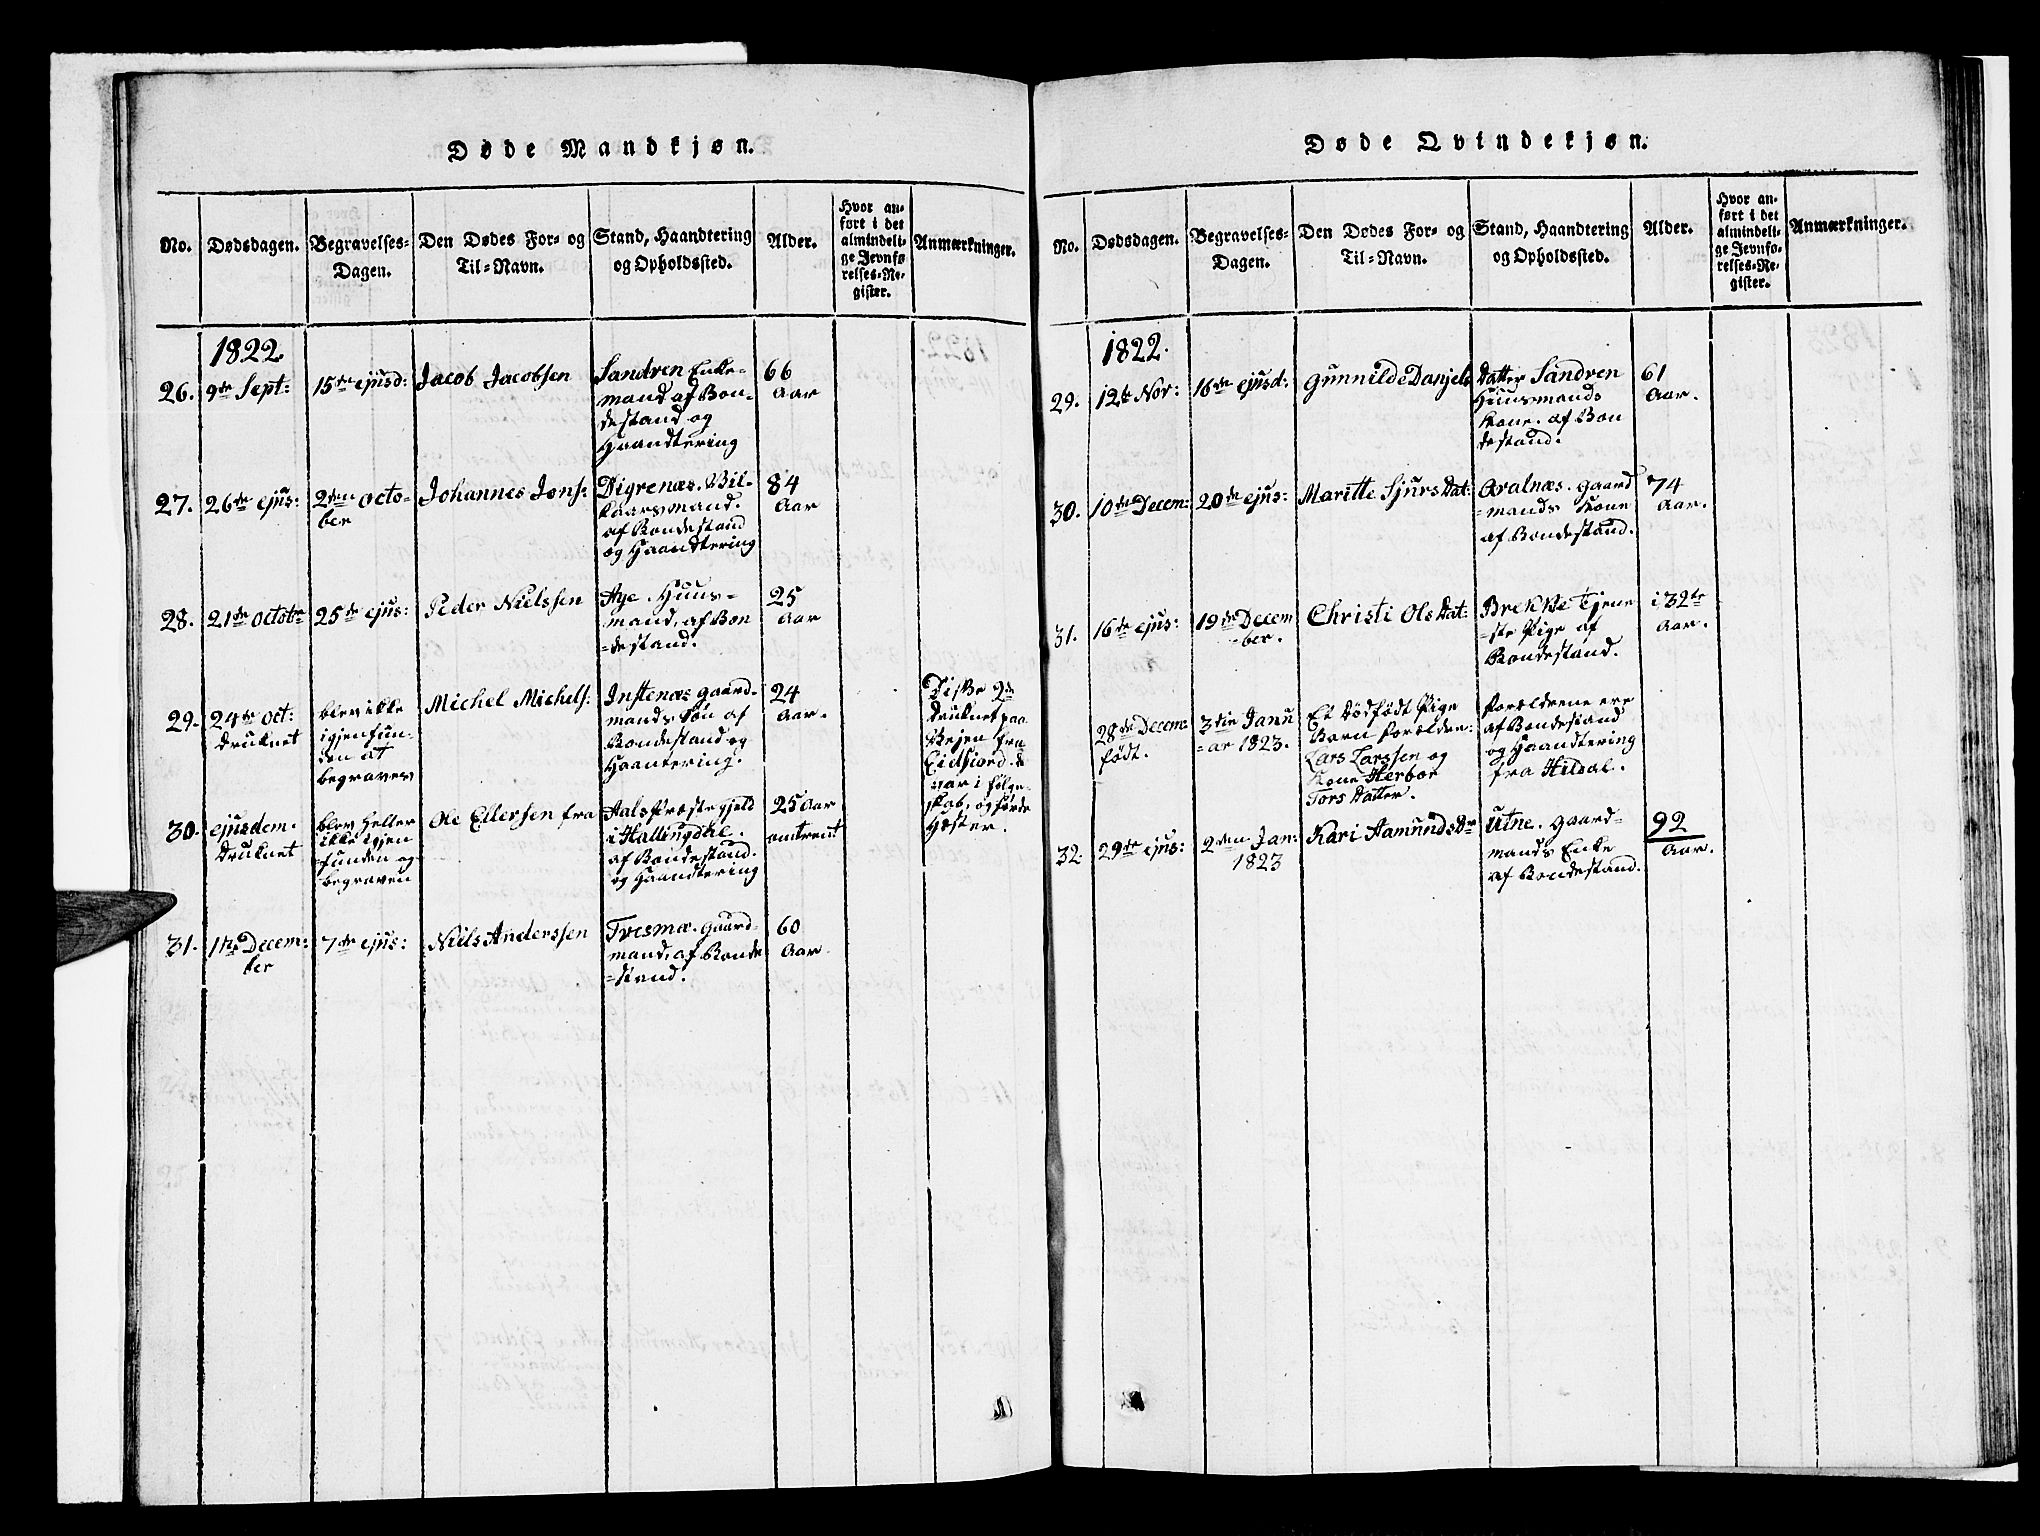 Døde Mandkjøn.
No.
Dødsdagen.
Begravelses-
Dagen.
Den Dødes For- og
Til-Navn.
Stand, Haandtering
og Opholdssted.
Alder.
Hvor an-
ført i det
almindeli-
ge Jevnfø-
relses-Re-
gister.
Anmærkninger.
1822
26.
9de Sept:
15de ejusd:
Jacob Jacobsen
Sandven Enke-
mand af Bon-
destand og
Haandtering
66
Aar
27.
26de ejus:
2den Octo-
ber
Johannes Jons:
Digrenæs. Vil-
kaarsmand.
af Bondestand
og Haandtering
84
Aar
28.
21de Octobr
25de ejus:
Peder Nielssen
Aye Huus-
mand, af Bon
=destand.
25
Aar
29.
24de Oct:
druknet
blev ikke
igjenfun-
den at
begraves
Michel Michels:
Instenæs gaard-
mands Søn af
Bondestand og
Haantering.
24
Aar.
Diske 2de
druknet paa
Rejsen fra
Eidfiord. de
var i Følge-
skab, og førde
Hæster.
30.
ejusdem.
druknet
blev heller
ikke igjen
funden og
begraven
Ole Ellersen fra
Aals Præstegjeld
i Hallingdal.
af Bondestand.
og Haandtering
25 Aar
omtrent
31.
1te Decem-
ber
7de ejus:
Niels Anderssen
Tvesmæ. Gaard-
mand, af Bonde
=stand.
60
Aar.
Døde Qvindekjøn.
No.
Dødsdagen.
Begravelses-
Dagen.
Den Dødes For- og
Til-Navn.
Stand, Haandtering
og Opholdssted.
Alder.
Hvor an-
ført i det
almindeli-
ge Jevnfø-
relses-Re-
gister.
Anmærkninger.
1822.
29.
12te Nov:
16de ejusd:
Gunnilde Danjels
Datter Sandven
Huusmands
Kone. af Bon
destand.
61
Aar.
30.
10de Decem:
20de ejus:
Maritte Sjurs Dat:
Aralnæs. Gaard
=mands Kone
af Bondestand.
74
Aar.
31.
16de ejus:
19de Decem
=ber.
Christi Ols Dat:
Brekke Tjene
=ste Pige af
Bondestand.
i 32te
Aar.
28de Decem:
født.
3die Janu
=ar 1823.
Et dødfødt Pige
Barn Forældre:
Lars Larssen og
Kone Herbor
Tors Datter.
Forældrene ere
af Bondestand
og Haandtering
fra Hildal.
32.
29de ejus:
2den Jan:
1823
Kari Aamunds Dr
Utne. Gaard-
mands Enke
af Bondestand.
92
Aar.